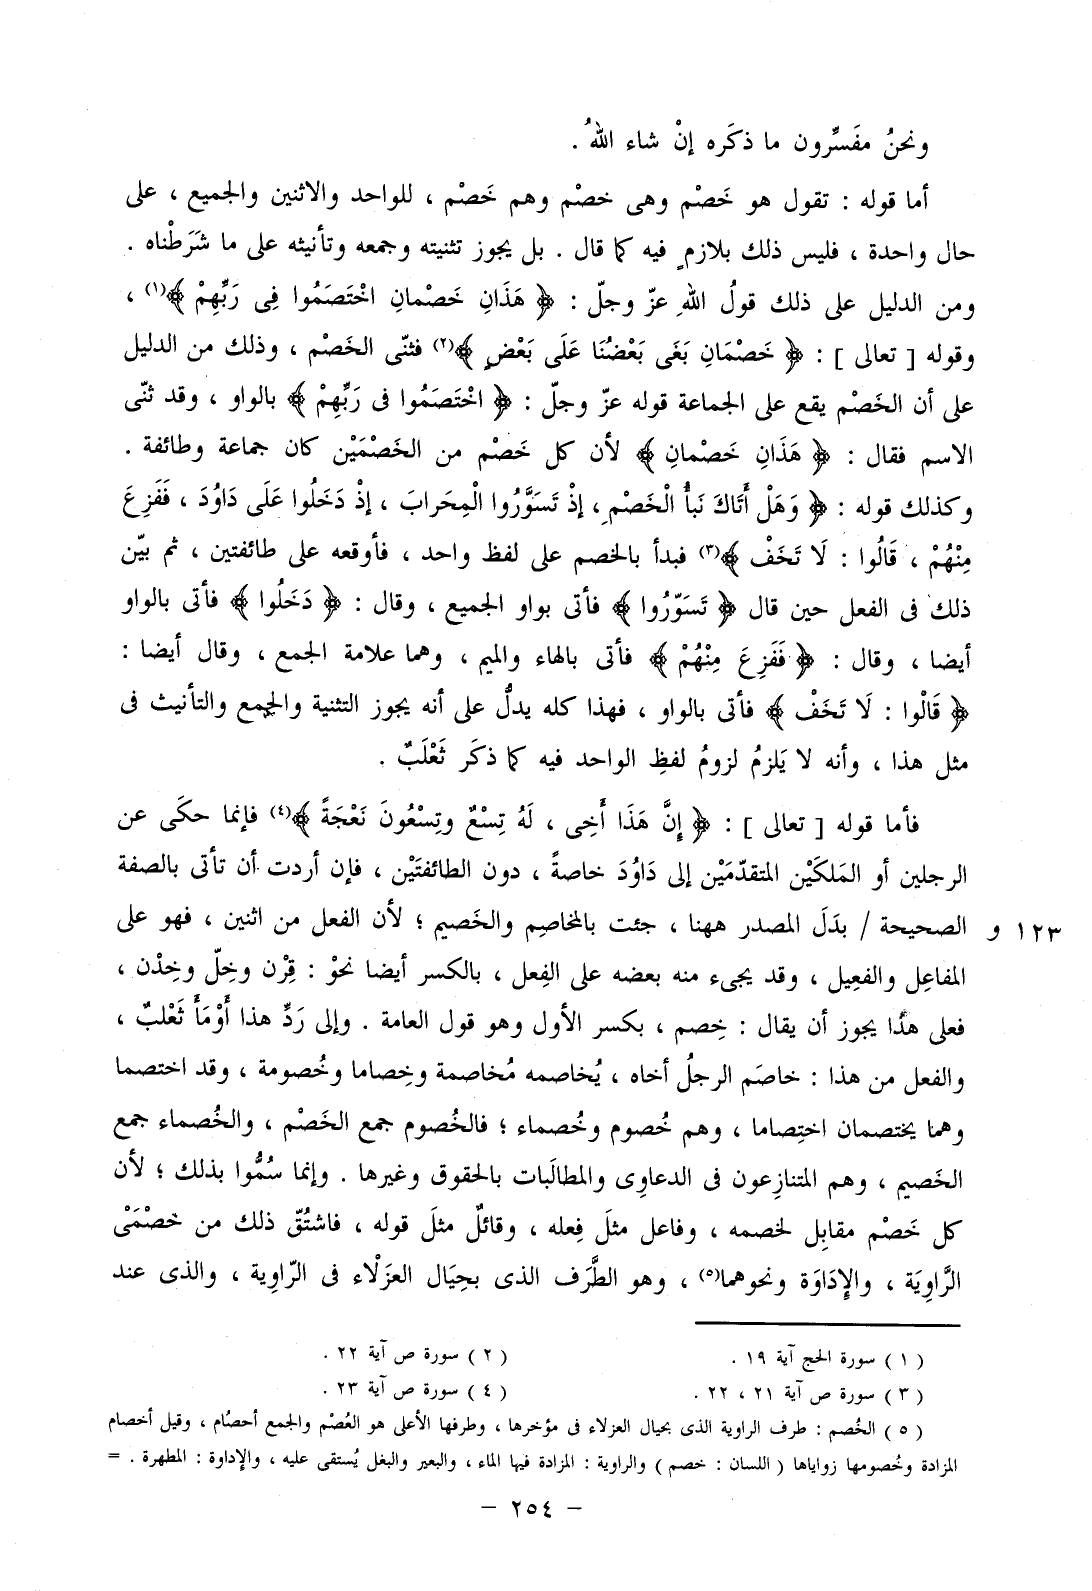 ونحنُ مفَسِّرون ما ذكَره إنْ شاء اللهُ .
أما قوله : تقول هو خَصْم وهى خصْم وهم خَصْم ، للواحد والاثنين والجميع ، على
حال واحدة ، فليس ذلك بلازمٍ فيه كما قال . بل يجوز تثنيته وجمعه وتأنيثه على ما شَرَطْناه .
ومن الدليل على ذلك قولُ اللهِ عزّ وجلّ : ﴿ هَذَانِ خَصْمانِ اخْتَصَمُوا فِى رَبِّهِمْ ﴾(١) ،
وقوله [ تعالى ] : ﴿ خَصْمَانِ بَغَى بَعْضُنَا عَلَى بَعْضٍ ﴾(٢) فثنّى الخَصْم ، وذلك من الدليل
على أن الخَصْم يقع على الجماعة قوله عزّ وجلّ : ﴿ اخْتَصَمُوا فى رَبِّهِمْ ﴾ بالواو ، وقد ثنّى
الاسم فقال : ﴿ هَذَانِ خَصْمانِ ﴾ لأن كل خَصْم من الخَصْمَيْن كان جماعة وطائفة .
وكذلك قوله : ﴿ وَهَلْ أَتَاكَ نَبأُ الْخَصْمِ ، إذْ تَسَوَّرُوا الْمِحَرابَ ، إذْ دَخَلُوا عَلَى دَاوُدَ ، فَفَزِعَ
مِنْهُمْ ، قَالُوا : لَا تَخَفْ ﴾(٣) فبدأ بالخصم على لفظ واحد ، فأوقعه على طائفتين ، ثم بيّن
ذلك فى الفعل حين قال ﴿ تَسَوّرُوا ﴾ فأتى بواو الجميع ، وقال : ﴿ دَخَلُوا ﴾ فأتى بالواو
أيضا ، وقال : ﴿ فَفَزِعَ مِنْهُمْ ﴾ فأتى بالهاء والميم ، وهما علامة الجمع ، وقال أيضا :
﴿ قَالْوا : لَا تَخَفْ ﴾ فأتى بالواو ، فهذا كله يدلُّ على أنه يجوز التثنية والجمع والتأنيث فى
مثل هذا ، وأنه لا يَلزمُ لزومُ لفظِ الواحد فيه كما ذكَر ثَعْلَبٌ .
فأما قوله [ تعالى ] : ﴿ إِنَّ هَذَا أَخِى ، لَهُ تِسْعٌ وتِسْعُونَ نَعْجَةً ﴾(٤) فإنما حكَى عن
الرجلين أو المَلكَيْن المتقدّمَيْن إلى دَاوُدَ خاصةً ، دون الطائفتَيْن ، فإن أردت أن تأتى بالصفة
الصحيحة / بدَلَ المصدر ههنا ، جئت بالمخاصِم والخَصيم ؛ لأن الفعل من اثنين ، فهو على ١٢٣ و
المفاعِل والفعِيل ، وقد يجىء منه بعضه على الفِعل ، بالكسر أيضا نحوْ : قِرْن وخِلّ وخِدْن ،
فعلى هذا يجوز أن يقال : خِصم ، بكسر الأول وهو قول العامة . وإلى رَدِّ هذا أَوْمَأَ ثَعْلبٌ ،
والفعل من هذا : خاصَم الرجلُ أخاه ، يُخاصمه مُخاصمة وخِصاما وخُصومة ، وقد اختصما
وهما يختصمان اختِصاما ، وهم خُصوم وخُصماء ؛ فالخُصوم جمع الخَصْم ، والخُصماء جمع
الخَصيم ، وهم المتنازِعون فى الدعاوِى والمطالَبات بالحقوق وغيرها . وإنما سُمُّوا بذلك ؛ لأن
كل خَصْم مقابِل لخصمه ، وفاعل مثلَ فِعله ، وقائلٌ مثلَ قوله ، فاشتُقّ ذلك من خصْمَىْ
الرَّاوِيَة ، والإدَاوَة ونحوهما(٥) ، وهو الطَّرَف الذى بحِيَال العزَلْاء فى الرّاوِية ، والذى عند
( ١ ) سورة الحج آية ١٩ . ( ٢ ) سورة ص آية ٢٢ .
( ٣ ) سورة ص آية ٢١ ، ٢٢ . ( ٤ ) سورة ص آية ٢٣ .
( ٥ ) الخُصم : طرف الراوية الذى بحيال العزلاء فى مؤخرها ، وطرفها الأعلى هو العُصْم والجمع أحصُام ، وقيل أخصام
المزادة وخُصومها زواياها ( اللسان : خصم ) والراوية : المزادة فيها الماء ، والبعير والبغل يُستقى عليه ، والإداوة : المطهرة . =
– ٢٥٤ –